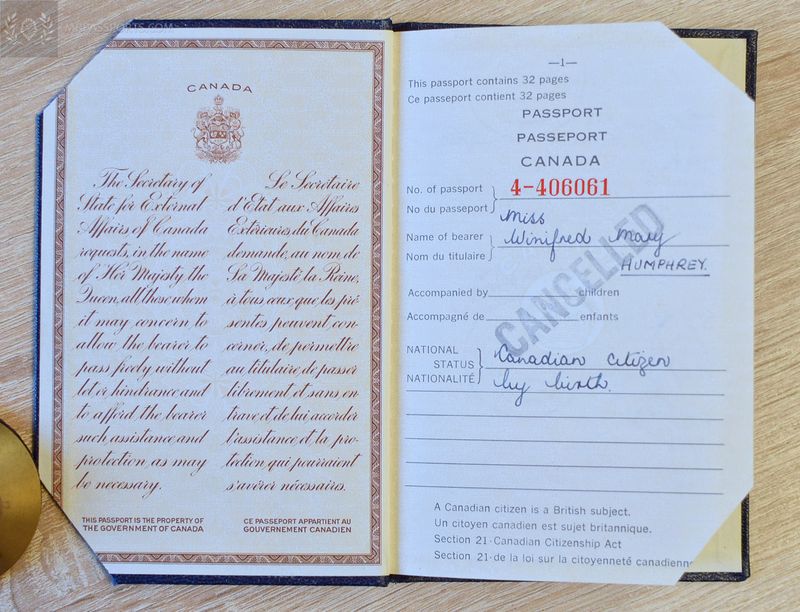 CANADA
The Secretary of
State for External
Affairs of Canada
requests, in the name
of Her Majesty the
Queen, all those whom
it may concern to
allow the bearer to
pass freely without
let or hindrance and
to afford the bearer
such assistance and
protection as may
be necessary.
Le Secrétaire
d'Etat aux Affaires
Extérieures du Canada
demande, au nom de
Sa Majesté la Reine,
à tous ceux que les pré-
sentes peuvent con-
cerner, de permettre
au titulaire de passer
librement et sans en-
trave et de lui accorder
l'assistance et la pro-
tection qui pourraient
s'avérer nécessaires.
THIS PASSPORT IS THE PROPERTY OF
THE GOVERNMENT OF CANADA
CE PASSEPORT APPARTIENT AU
GOUVERNEMENT CANADIEN
—1—
This passport contains 32 pages
Ce passeport contient 32 pages
PASSPORT
PASSEPORT
CANADA
No. of passport
No du passeport
4-406061
Miss
Name of bearer
Nom du titulaire
Winifred Mary
HUMPHREY.
CANCELLED
Accompanied by children
Accompagné de enfants
NATIONAL
STATUS
NATIONALITÉ
Canadian citizen
by birth.
A Canadian citizen is a British subject.
Un citoyen canadien est sujet britannique.
Section 21-Canadian Citizenship Act
Section 21-de la loi sur la citoyenneté canadienne